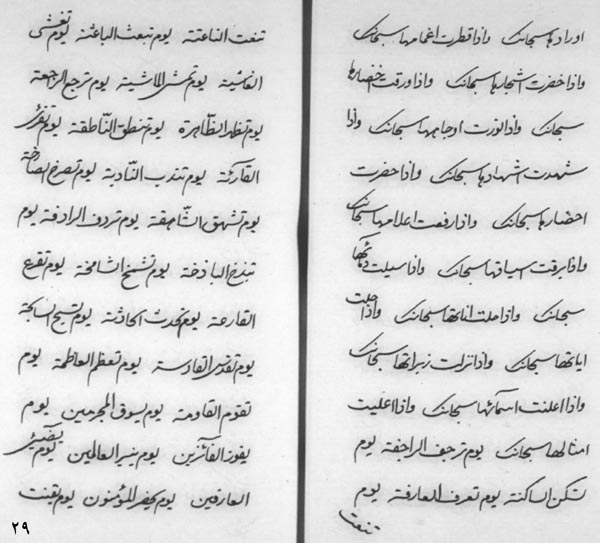 اورادها سبحانک واذا قطرت اغمامها سبحانک
واذا خضرت اشجارها سبحانک واذا ورقت اخضارها
سبحانک واذا لورت اوجامها سبحانک واذا
شهدت اشهادها سبحانک واذا حضرت
احضارها سبحانک واذا رفعت اعلامها سبحانک
واذا برقت اسیافها سبحانک واذا سیلت دمائها
سبحانک واذا حلت اناتها سبحانک واذا اجلت
ایاتها سبحانک واذا نزلت زبراتها سبحانک
واذا اعلنت اسمائها سبحانک واذا اعلیت
امثالها سبحانک یوم ترجف الراجفة یوم
تسکن الساکنة یوم تعرف العارفة یوم
تنعت
تنعت الناعتة یوم تبعث الباعثة یوم تغشی
الغاشیة یوم تمشی الماشیة یوم ترجع الراجعة
یوم تظهر الظاهرة یوم تنطق الناطقة یوم تقرء
القارئة یوم تندب النادبة یوم تصرخ الصارخة
یوم تشهق الشاهقة یوم تردف الرادفة یوم
تبذخ الباذخة یوم تشمخ الشامخة یوم تقرع
القارعة یوم تحدث الحادثة یوم تسبح السابحة
یوم تقدس القادسة یوم تعظم العاظمة یوم
تقوم القاومة یوم یسوق المجرمین یوم
یفوز الفائزین یوم ینیر العالمین یوم یضیئ
العارفین یوم یحضر المؤمنون یوم یقنت
۲۹